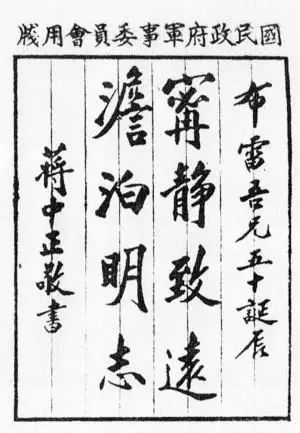 國民政府軍事委員會用牋
布雷吾兄五十誕辰
甯靜致遠
澹泊明志
蔣中正敬書